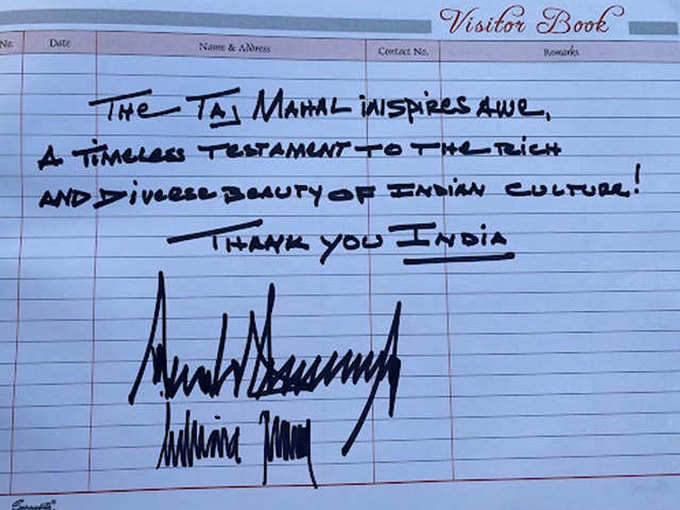 Visitor Book
No. Date Name & Address Contact No. Remarks
THE TAJ MAHAL iNSPiRES AWE,
A TIMELESS TESTAMENT TO THE RICH
AND DIVERSE BEAUTY OF INDIAN CULTURE!
THANK YOU INDIA